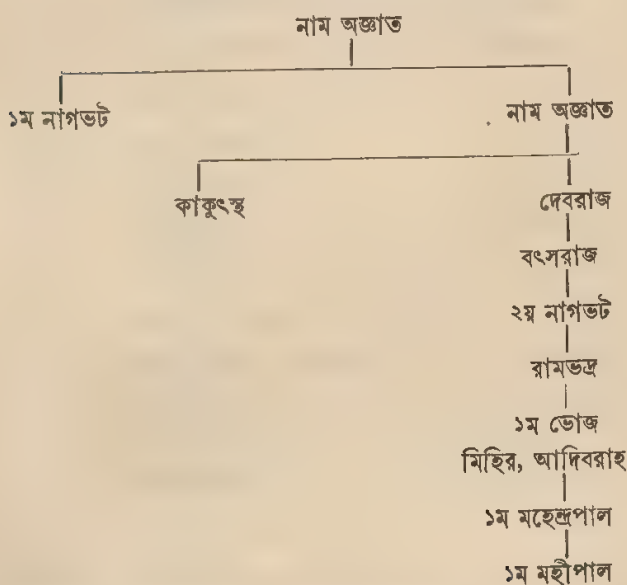 নাম অজ্ঞাত
১ম নাগভট
নাম অজ্ঞাত
কাকুৎস্থ
দেবরাজ
বৎসরাজ
২য় নাগভট
রামভদ্র
১ম ভোজ
মিহির, আদিবরাহ
১ম মহেন্দ্রপাল
১ম মহীপাল